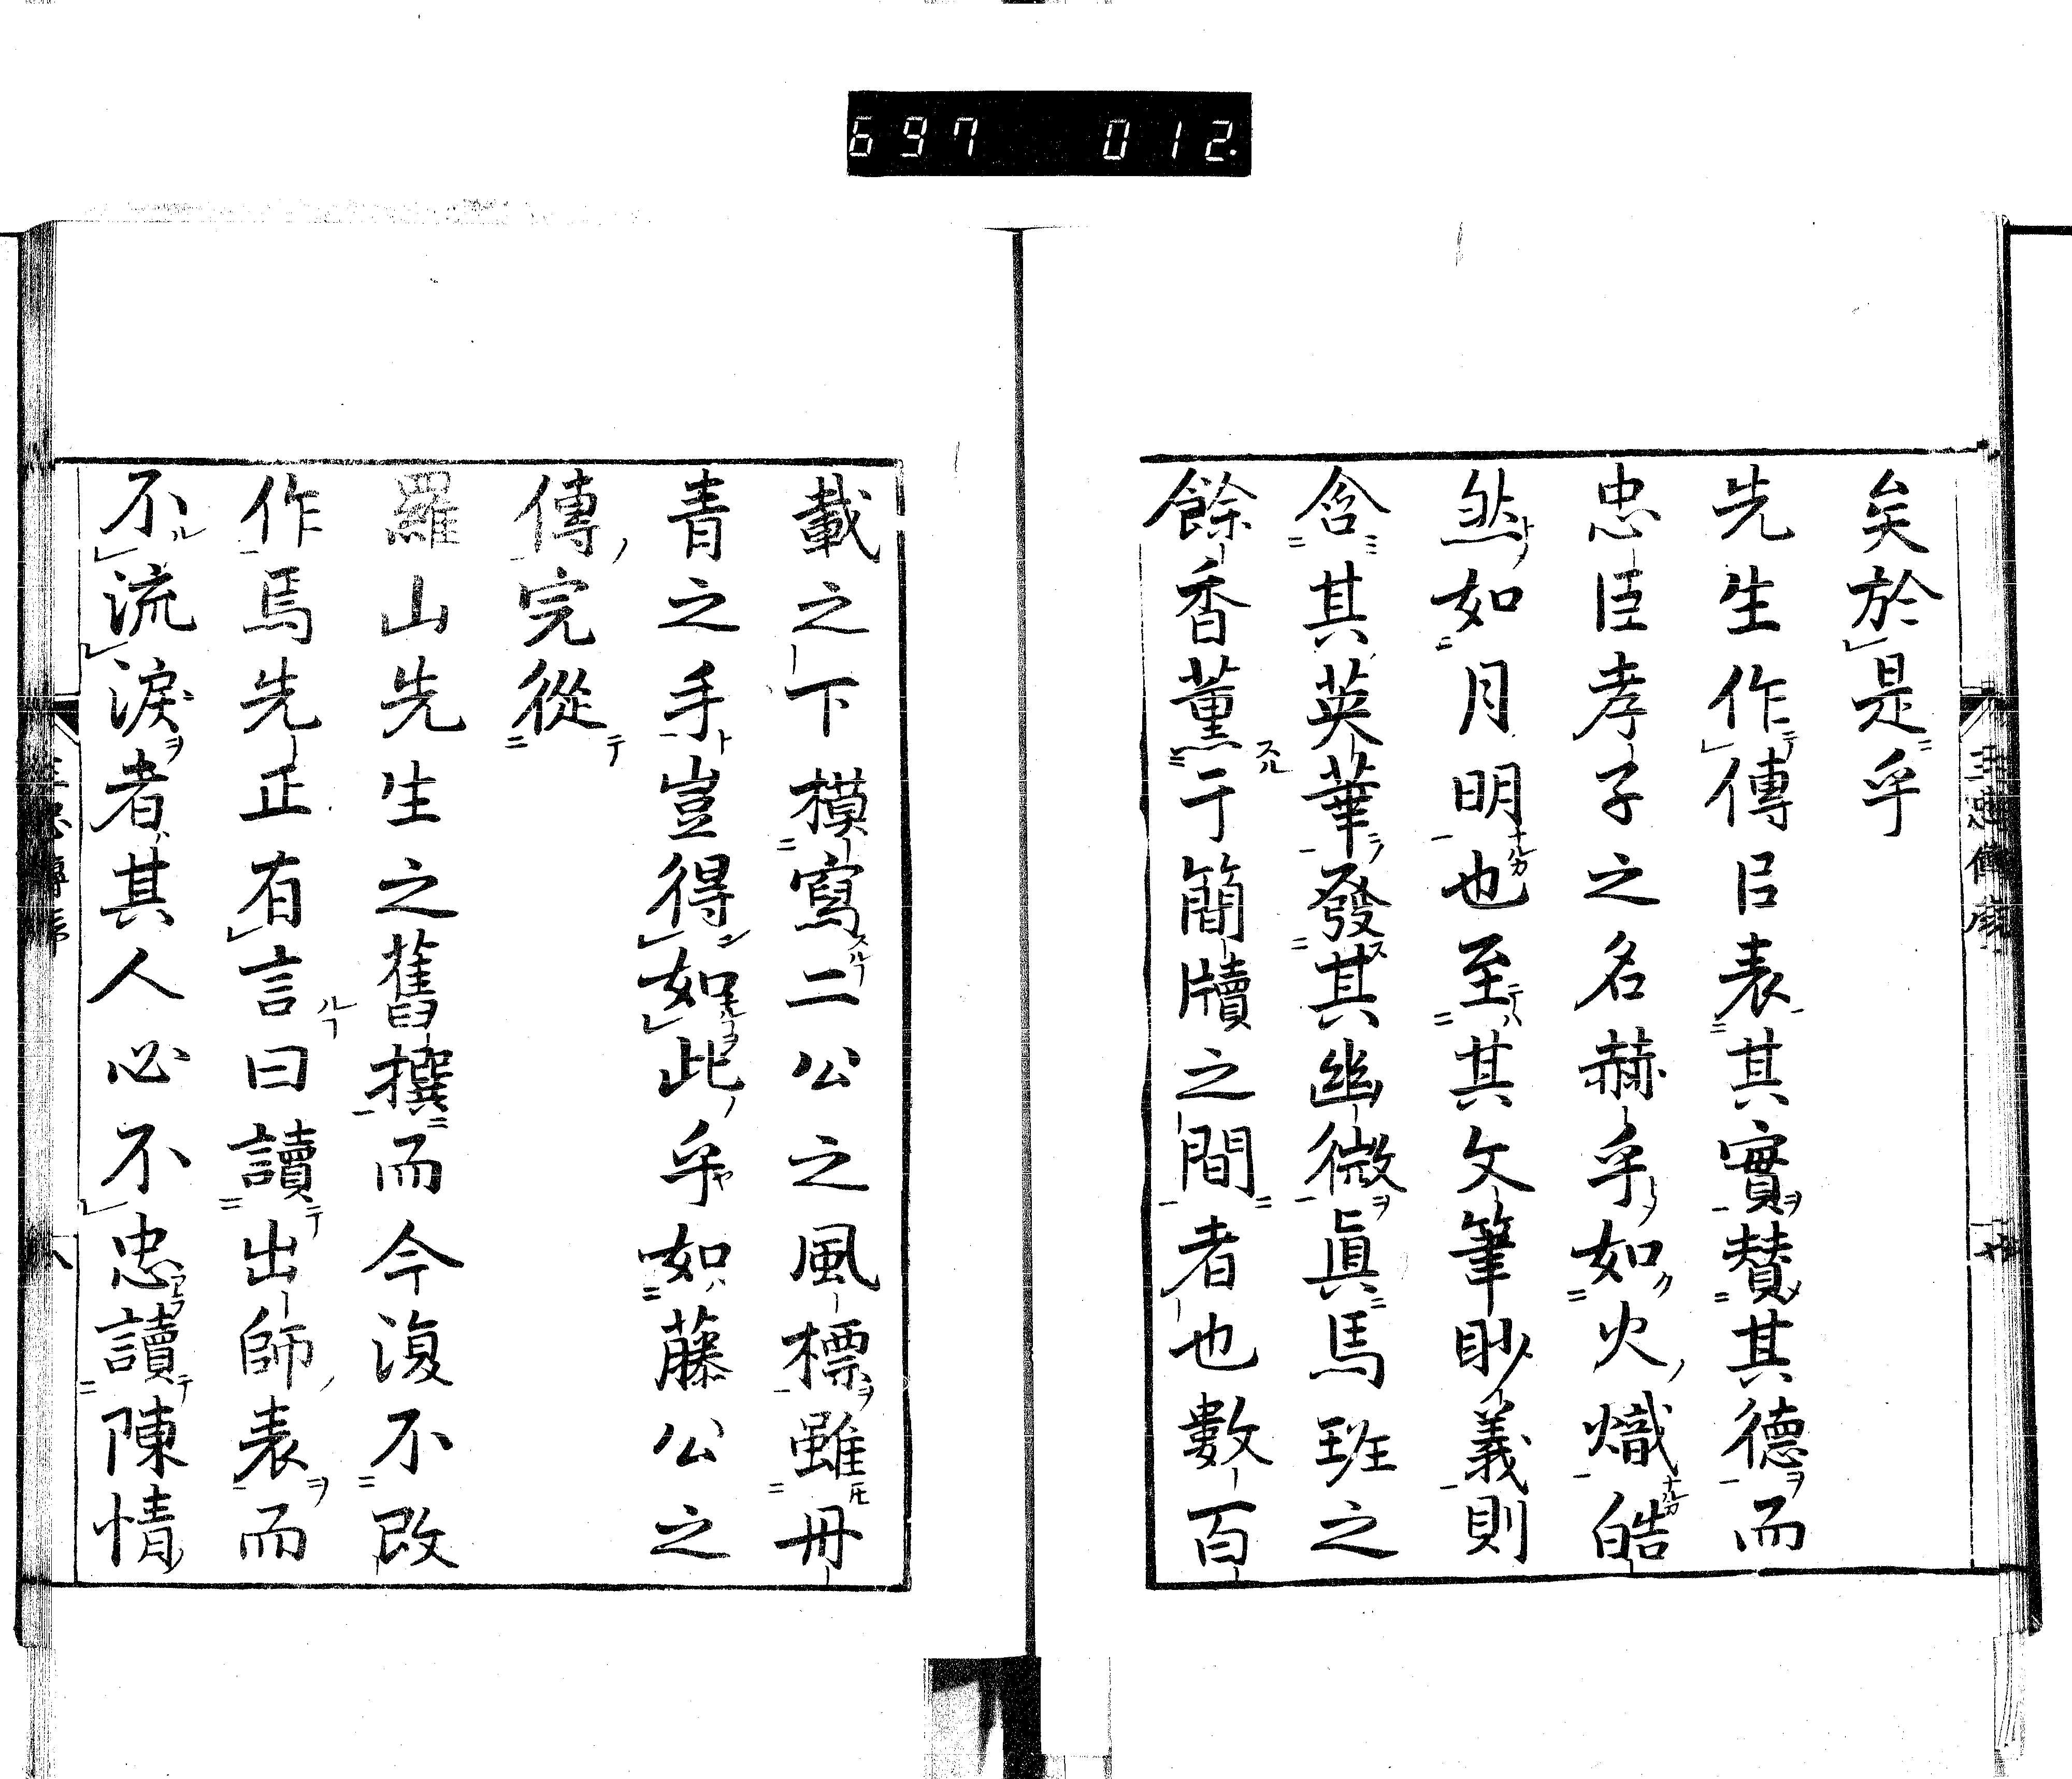 697 012.
矣於是乎
先生作傳以表其實賛其德而
忠臣孝子之名赫乎如火熾皓
然如月明也至其文筆眇義則
含其英華發其幽微眞馬班之
餘香薫于簡牘之間者也數百
載之下模寫二公之風標雖丹
青之手豈得如此乎如藤公之
傳完從
羅山先生之舊撰而今復不改
作焉先正有言曰讀出師表而
不流淚者其人必不忠讀陳情